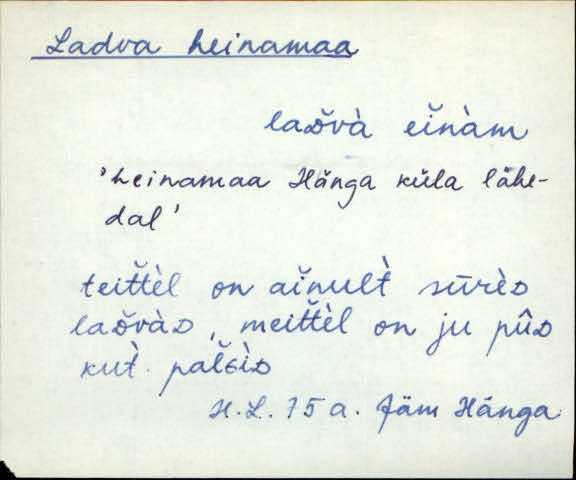 Ladva heinamaa
laᴅ̆và eĭnàm
'heinamaa Hänga küla lähe-
dal'
teit̆t̀èl on aĭnul̀t sūrèᴅ
laᴅ̆vàᴅ, meit̆t̀èl on ju pûᴅ
kut̀ pal̆ɢìᴅ
H.L. 75 a. Jäm Hänga